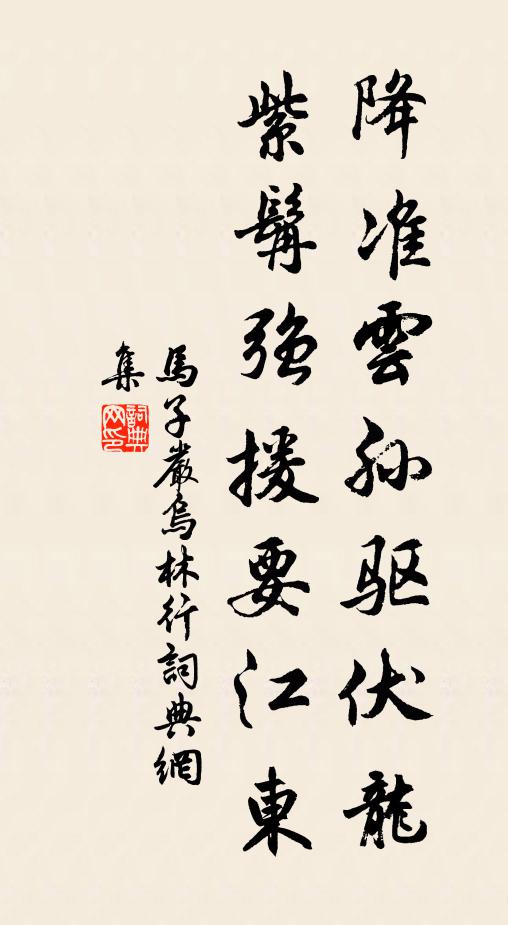 降准雲孙驱伏龍
紫髯強援要江東
馬子嚴烏林行詞典網
集
詞典网印